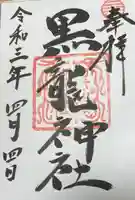 奉拝
黒龍神社
令和三年四月四日